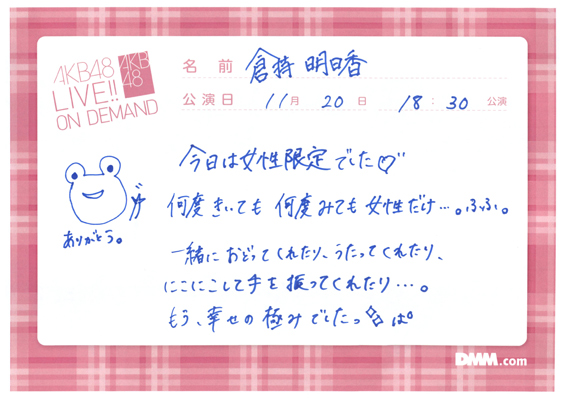 AKB48
LIVE!!
ON DEMAND
AKB
48
名前 倉持明日香
公演日 11月 20日 18:30 公演
今日は女性限定でした♡
何度きいても 何度みても女性だけ…。ふふ。
ありがとう。
一緒におどってくれたり、うたってくれたり、
にこにこして手を振ってくれたり…。
もう、幸せの極みでしたっ
DMM.com